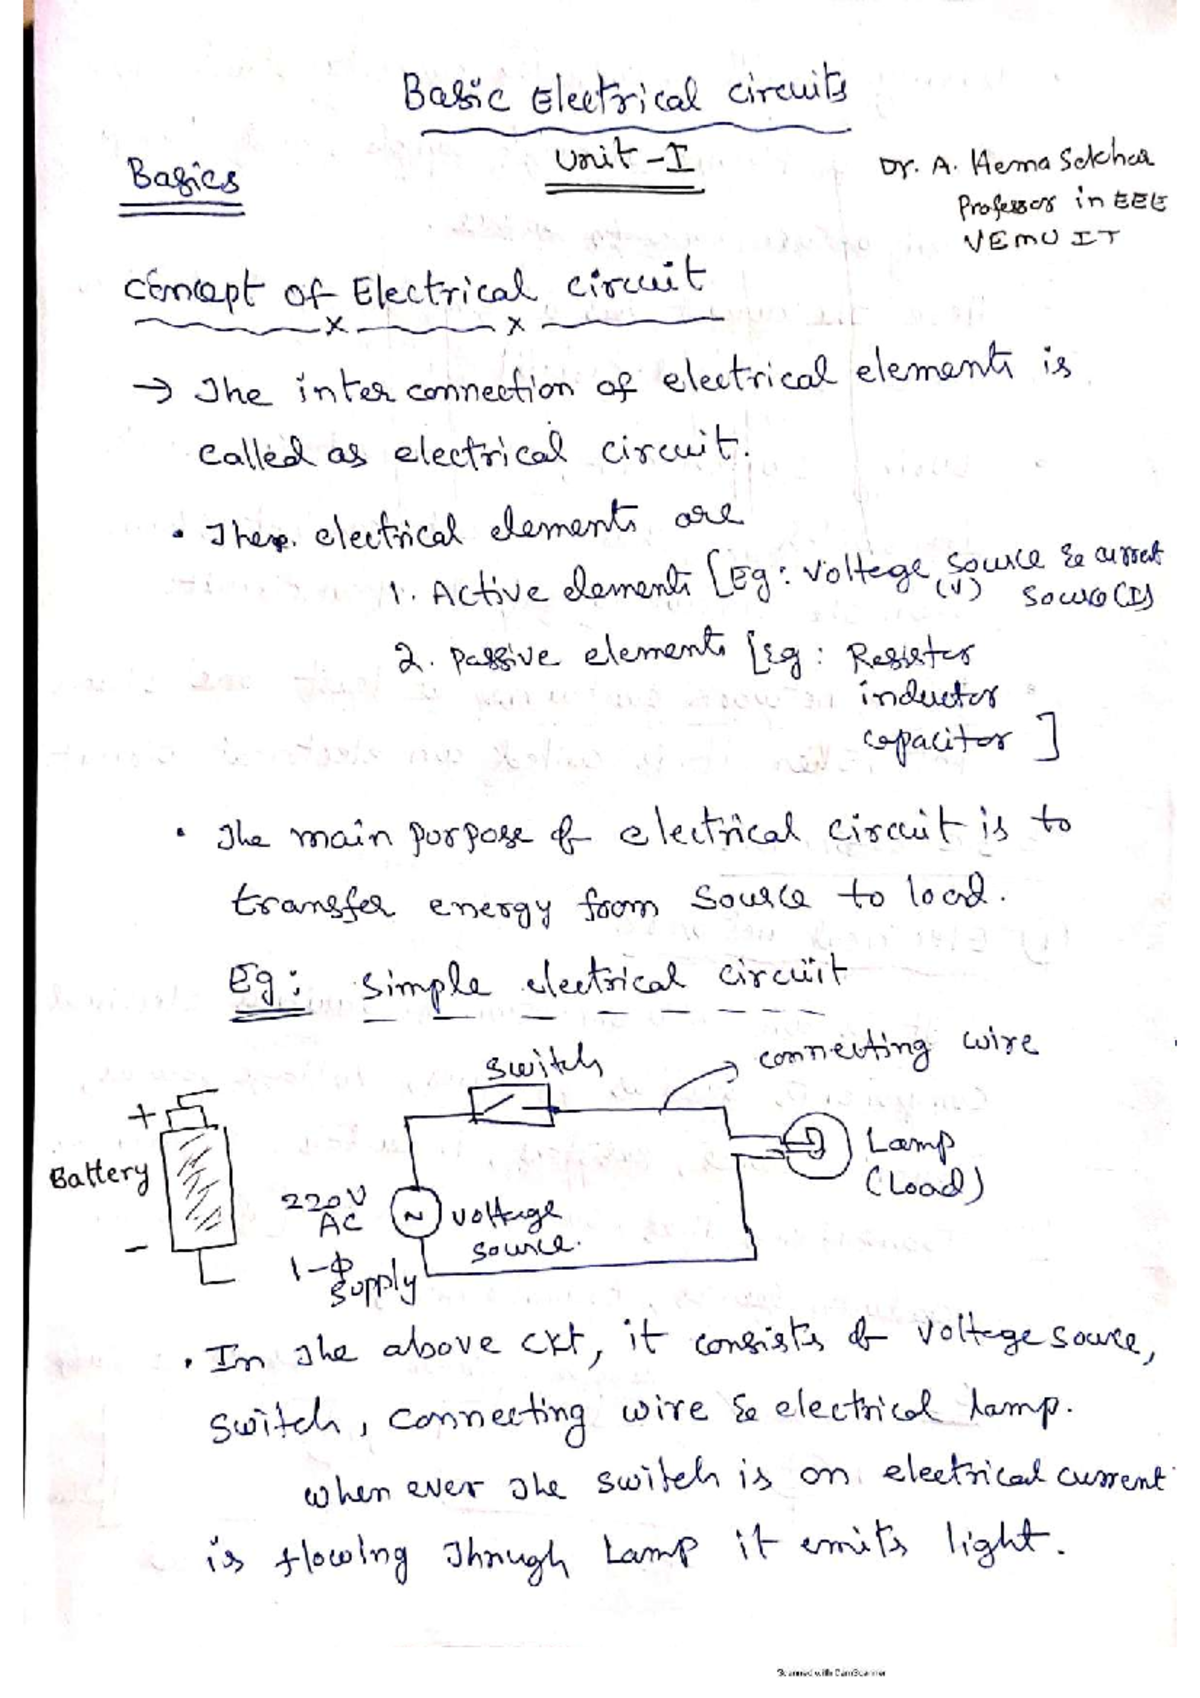 Basic Electrical circuits
Unit-I
Basics
Dr. A. Hema Sekhar
Professor in EEE
VEMU IT
Concept of Electrical circuit
→ The inter connection of electrical elements is
called as electrical circuit.
• These electrical elements are
1. Active elements [Eg: Voltage source & current
(V) source (I)
2. passive elements [Eg: Resistor
inductor
capacitor]
• The main purpose of electrical circuit is to
transfer energy from source to load.
Eg: simple electrical circuit
switch
connecting wire
+
Battery
-
220V
AC
1-Φ
supply
~
voltage
source.
Lamp
(Load)
• In the above ckt, it consists of voltage source,
switch, connecting wire & electrical lamp.
when ever the switch is on electrical current
is flowing through Lamp it emits light.
Scanned with CamScanner